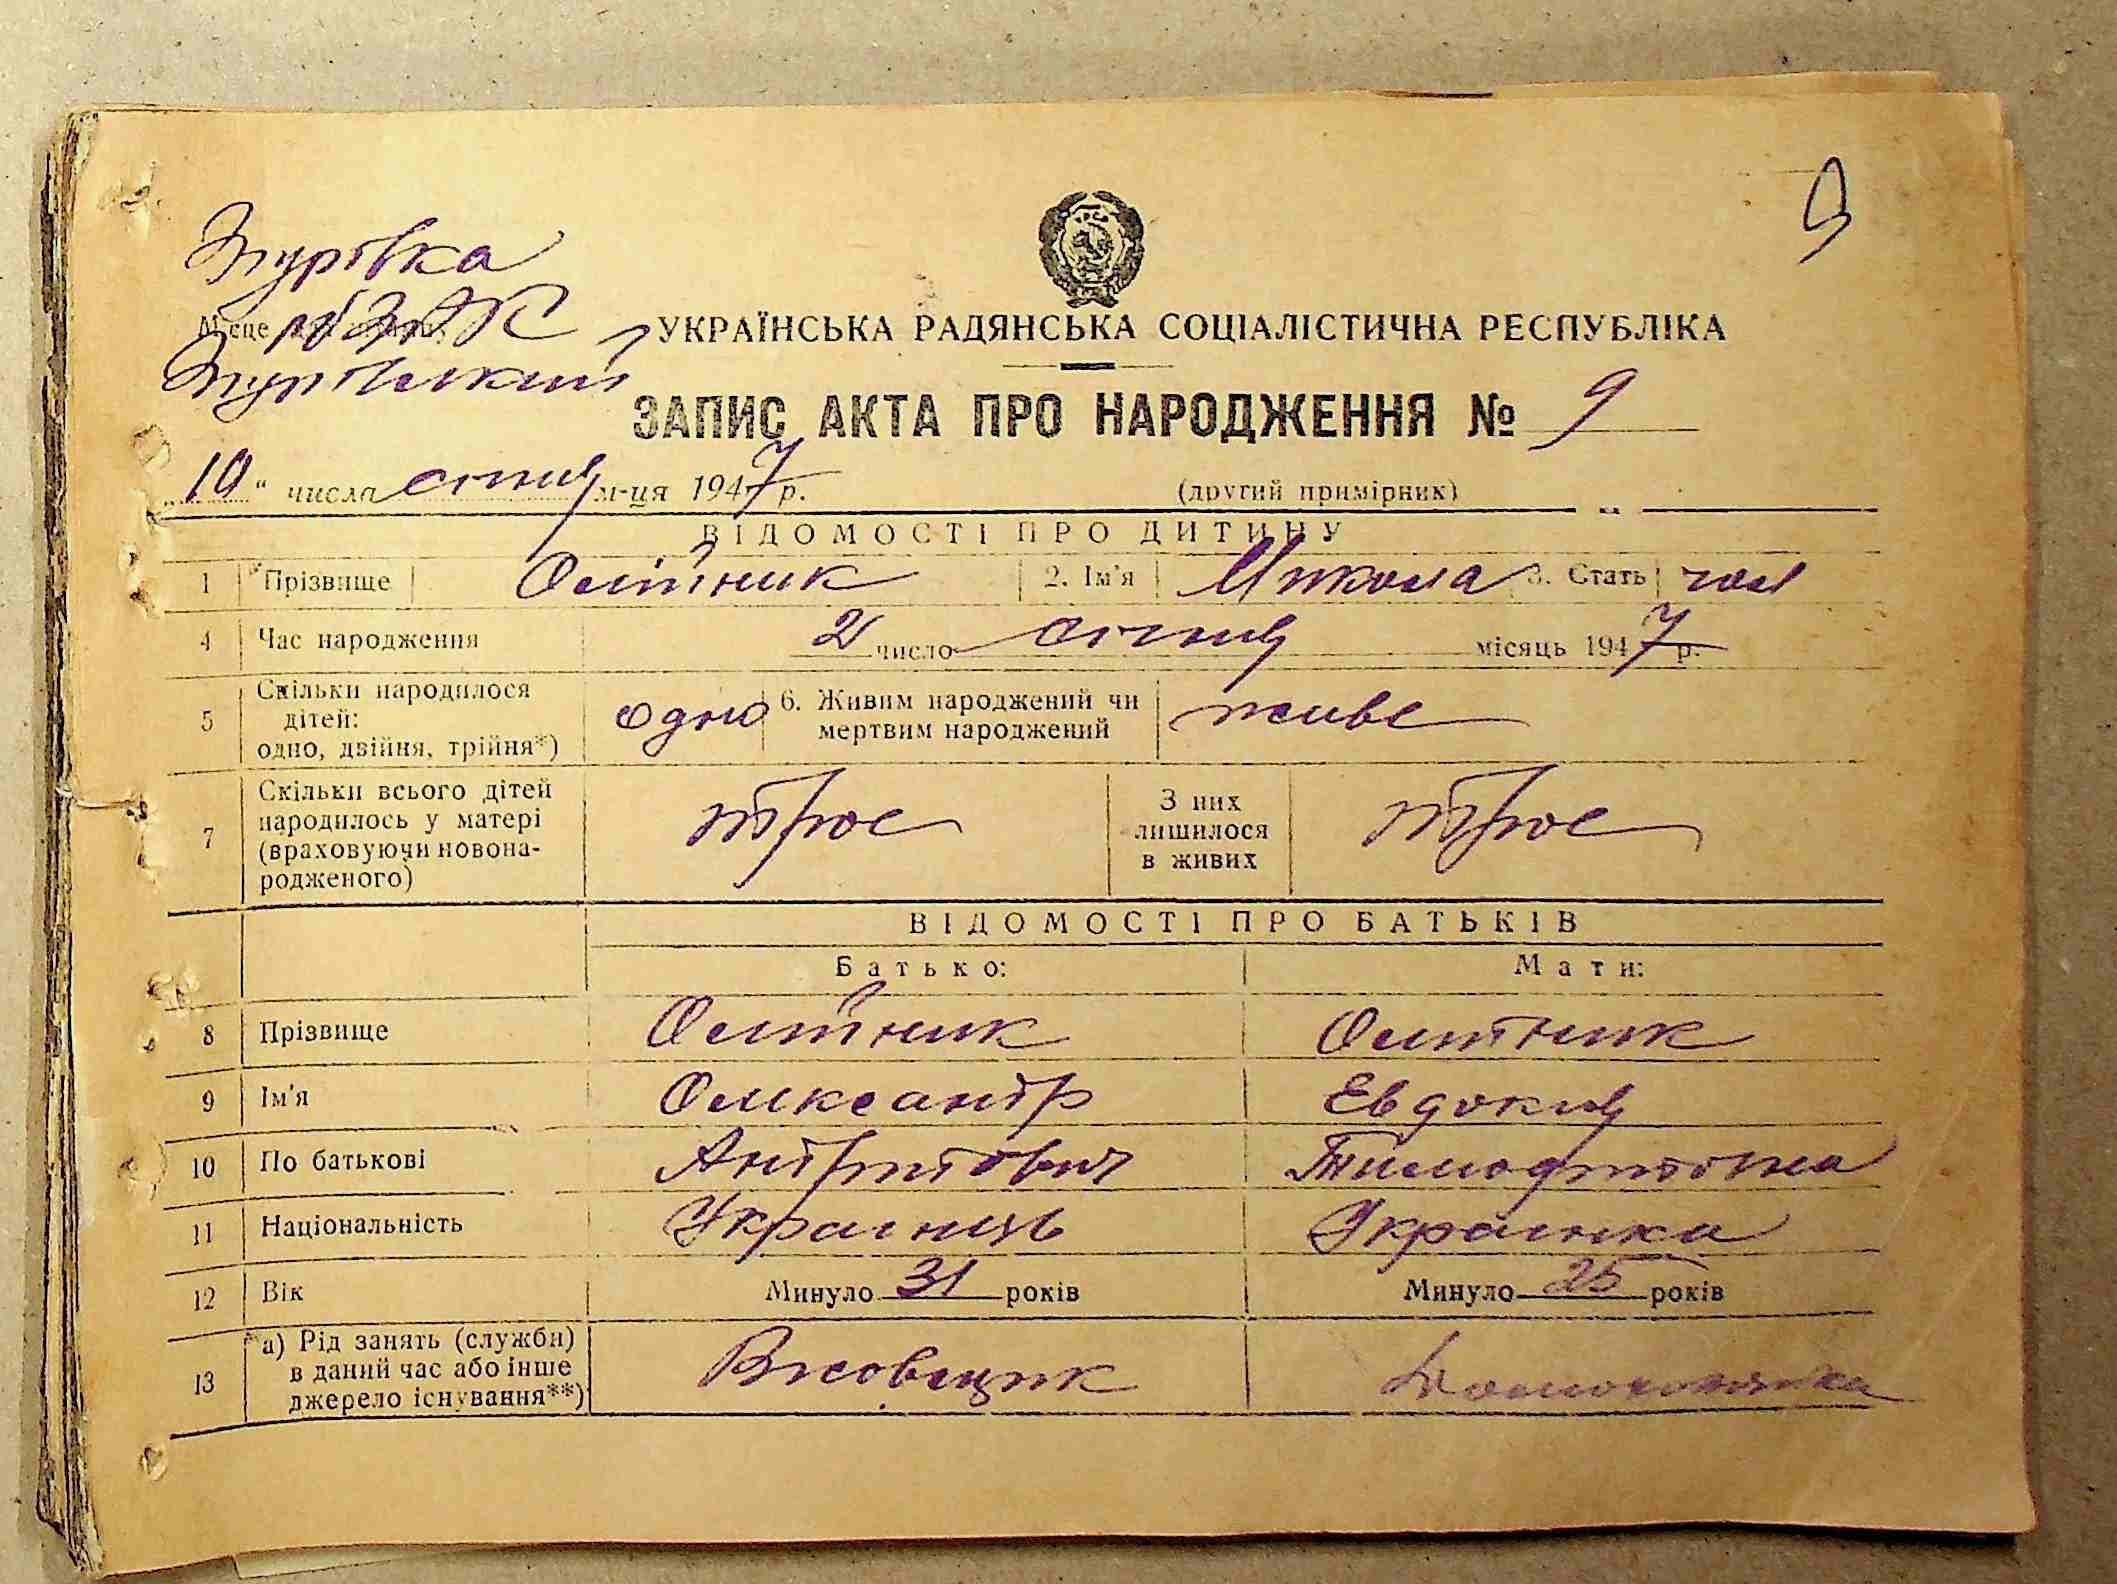 9
Згурівка
рбЗАГС
Згурівський
УКРАЇНСЬКА РАДЯНСЬКА СОЦІАЛІСТИЧНА РЕСПУБЛІКА
ЗАПИС АКТА ПРО НАРОДЖЕННЯ № 9
„10“ числа січня м-ця 1947 р. (другий примірник)
ВІДОМОСТІ ПРО ДИТИНУ
1 Прізвище Олійник 2. Ім'я Микола 3. Стать чол
4 Час народження 2 число січня місяць 1947 р.
5 Скільки народилося дітей: одно, двійня, трійня*) одно 6. Живим народжений чи мертвим народжений живе
7 Скільки всього дітей народилось у матері (враховуючи новонародженого) троє З них лишилося в живих троє
ВІДОМОСТІ ПРО БАТЬКІВ
Батько: Мати:
8 Прізвище Олійник Олійник
9 Ім'я Олександр Евдокия
10 По батькові Андрійович Тимофіївна
11 Національність Украінець Украінка
12 Вік Минуло 31 років Минуло 25 років
13 а) Рід занять (служби) в даний час або інше джерело існування**) Вісовщик Домохозяйка